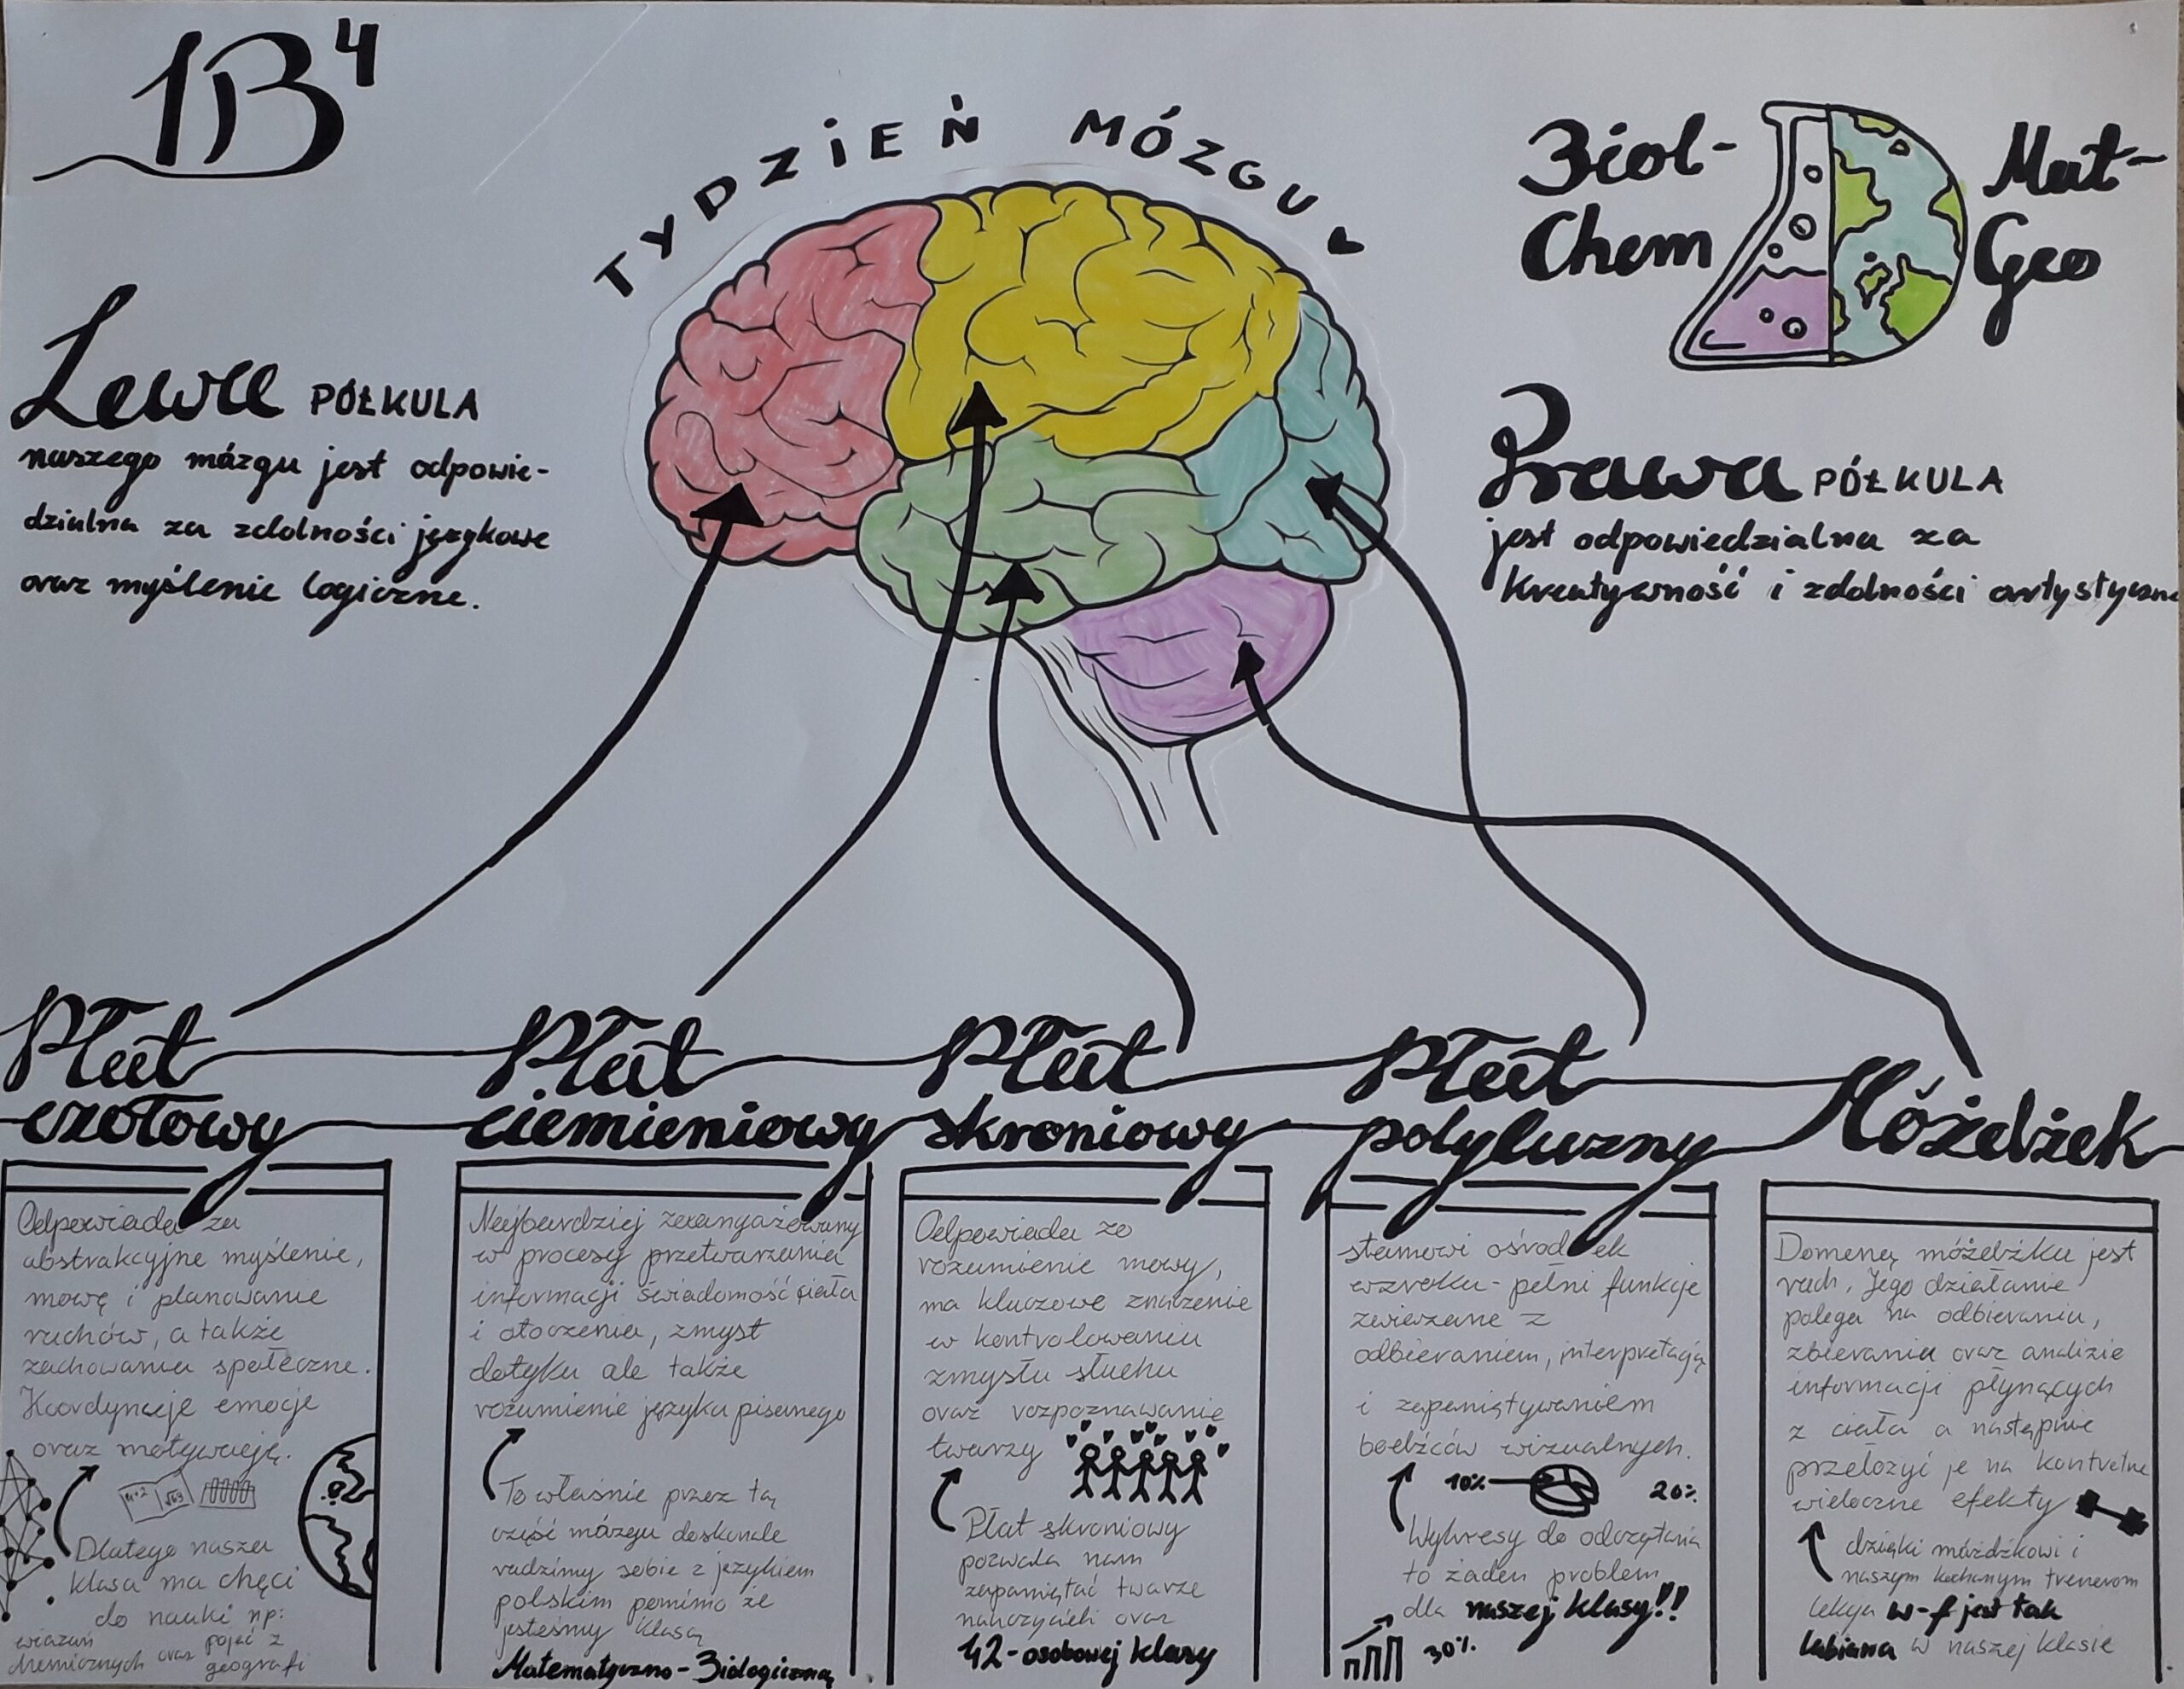 1B4
TYDZIEŃ MÓZGU
Biol-
Chem
Mat-
Geo
Lewa PÓŁKULA
naszego mózgu jest odpowie-
dzialna za zdolności językowe
oraz myślenie logiczne.
Prawa PÓŁKULA
jest odpowiedzialna za
kreatywność i zdolności artystyczne
Płat
czołowy
Odpowiada za
abstrakcyjne myślenie,
mowę i planowanie
ruchów, a także
zachowania społeczne.
Koordynuje emocje
oraz motywację.
4+2
√69
Dlatego nasza
klasa ma chęci
do nauki np:
wiązań
chemicznych oraz pojęć z
geografi
Płat
ciemieniowy
Najbardziej zaangażowany
w procesy przetwarzania
informacji świadomość ciała
i otoczenia, zmysł
dotyku ale także
rozumienie języka pisanego
To właśnie przez tą
część mózgu doskonale
radzimy sobie z językiem
polskim pomimo że
jesteśmy klasą
Matematyczno-Biologiczną
Płat
skroniowy
Odpowiada za
rozumienie mowy,
ma kluczowe znaczenie
w kontrolowaniu
zmysłu słuchu
oraz rozpoznawanie
twarzy
Płat skroniowy
pozwala nam
zapamiętać twarze
nauczycieli oraz
42-osobowej klasy
Płat
potyluczny
stanowi ośrodek
wzroku - pełni funkcje
związane z
odbieraniem, interpretacją
i zapamiętywaniem
bodźców wizualnych.
10%
20%
Wykresy do odczytania
to żaden problem
dla naszej klasy!!
30%
Móżdżek
Domeną móżdżku jest
ruch. Jego działanie
polega na odbieraniu,
zbieraniu oraz analizie
informacji płynących
z ciała a następnie
przełożyć je na kontretne
widoczne efekty
dzięki móżdżkowi i
naszym kochanym trenerom
lekcja w-f jest tak
lubiana w naszej klasie